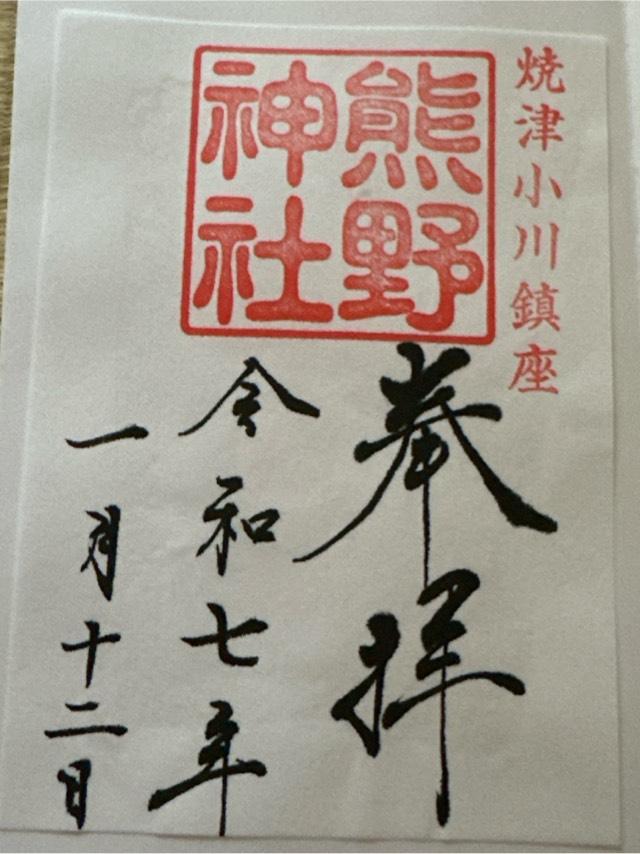 焼津小川鎮座
熊野
神社
奉拝
令和七年
一月十二日